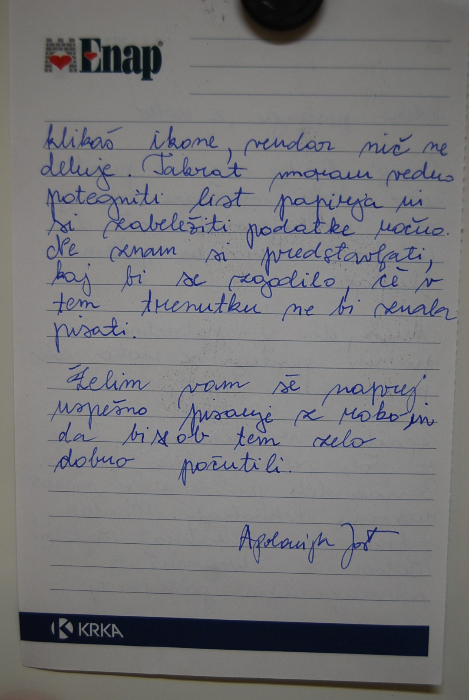 Enap
klikaš ikone, vendar nič ne
deluje. Takrat moram vedno
potegniti list papirja in
si zabeležiti podatke ročno.
Ne znam si predstavljati,
kaj bi se zgodilo, če v
tem trenutku ne bi znala
pisati.
Želim vam še naprej
uspešno pisanje z roko in
da bi se ob tem zelo
dobro počutili.
KRKA